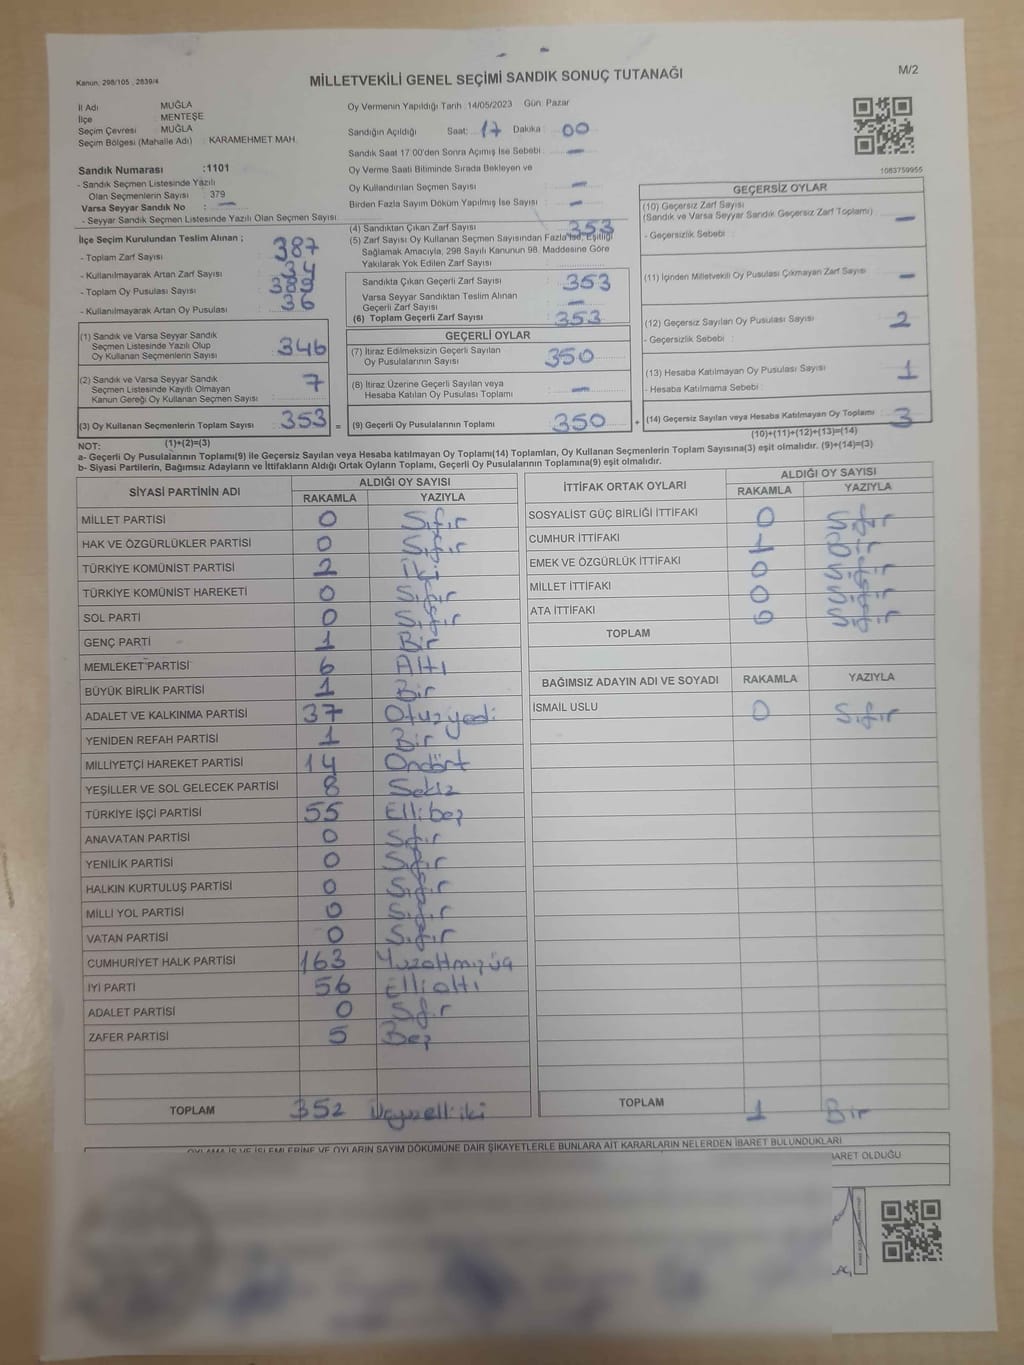 Kanun, 298/105 , 2839/4
MİLLETVEKİLİ GENEL SEÇİMİ SANDIK SONUÇ TUTANAĞI
M/2
İl Adı MUĞLA
İlçe MENTEŞE
Seçim Çevresi : MUĞLA
Seçim Bölgesi (Mahalle Adı) : KARAMEHMET MAH.
Sandık Numarası :1101
- Sandık Seçmen Listesinde Yazılı
Olan Seçmenlerin Sayısı : 379
Varsa Seyyar Sandık No : —
- Seyyar Sandık Seçmen Listesinde Yazılı Olan Seçmen Sayısı
Oy Vermenin Yapıldığı Tarih :14/05/2023 Gün: Pazar
Sandığın Açıldığı Saat: 17 Dakika : 00
Sandık Saat 17:00'den Sonra Açımış İse Sebebi : —
Oy Verme Saati Bitiminde Sırada Bekleyen ve
Oy Kullandırılan Seçmen Sayısı : —
Birden Fazla Sayım Döküm Yapılmış İse Sayısı : —
1083759955
İlçe Seçim Kurulundan Teslim Alınan ;
- Toplam Zarf Sayısı : 387
- Kullanılmayarak Artan Zarf Sayısı : 34
- Toplam Oy Pusulası Sayısı : 389
- Kullanılmayarak Artan Oy Pusulası : 36
(1) Sandık ve Varsa Seyyar Sandık
Seçmen Listesinde Yazılı Olup
Oy Kullanan Seçmenlerin Sayısı : 346
(2) Sandık ve Varsa Seyyar Sandık
Seçmen Listesinde Kayıtlı Olmayan
Kanun Gereği Oy Kullanan Seçmen Sayısı : 7
(3) Oy Kullanan Seçmenlerin Toplam Sayısı : 353 =
(4) Sandıktan Çıkan Zarf Sayısı : 353
(5) Zarf Sayısı Oy Kullanan Seçmen Sayısından Fazla İse, Eşitliği
Sağlamak Amacıyla, 298 Sayılı Kanunun 98. Maddesine Göre
Yakılarak Yok Edilen Zarf Sayısı :
Sandıkta Çıkan Geçerli Zarf Sayısı : 353
Varsa Seyyar Sandıktan Teslim Alınan
Geçerli Zarf Sayısı : —
(6) Toplam Geçerli Zarf Sayısı : 353
GEÇERLİ OYLAR
(7) İtiraz Edilmeksizin Geçerli Sayılan
Oy Pusulalarının Sayısı : 350
(8) İtiraz Üzerine Geçerli Sayılan veya
Hesaba Katılan Oy Pusulası Toplamı : —
(9) Geçerli Oy Pusulalarının Toplamı : 350 +
GEÇERSİZ OYLAR
(10) Geçersiz Zarf Sayısı
(Sandık ve Varsa Seyyar Sandık Geçersiz Zarf Toplamı) : —
- Geçersizlik Sebebi :
(11) İçinden Milletvekili Oy Pusulası Çıkmayan Zarf Sayısı : —
(12) Geçersiz Sayılan Oy Pusulası Sayısı : 2
- Geçersizlik Sebebi :
(13) Hesaba Katılmayan Oy Pusulası Sayısı : 1
- Hesaba Katılmama Sebebi :
(14) Geçersiz Sayılan veya Hesaba Katılmayan Oy Toplamı : 3
NOT: (1)+(2)=(3)
(10)+(11)+(12)+(13)=(14)
a- Geçerli Oy Pusulalarının Toplamı(9) ile Geçersiz Sayılan veya Hesaba katılmayan Oy Toplamı(14) Toplamları, Oy Kullanan Seçmenlerin Toplam Sayısına(3) eşit olmalıdır. (9)+(14)=(3)
b- Siyasi Partilerin, Bağımsız Adayların ve İttifakların Aldığı Ortak Oyların Toplamı, Geçerli Oy Pusulalarının Toplamına(9) eşit olmalıdır.
SİYASİ PARTİNİN ADI ALDIĞI OY SAYISI
RAKAMLA YAZIYLA
MİLLET PARTİSİ 0 Sıfır
HAK VE ÖZGÜRLÜKLER PARTİSİ 0 Sıfır
TÜRKİYE KOMÜNİST PARTİSİ 2 İki
TÜRKİYE KOMÜNİST HAREKETİ 0 Sıfır
SOL PARTİ 0 Sıfır
GENÇ PARTİ 1 Bir
MEMLEKET PARTİSİ 6 Altı
BÜYÜK BİRLİK PARTİSİ 1 Bir
ADALET VE KALKINMA PARTİSİ 37 Otuzyedi
YENİDEN REFAH PARTİSİ 1 Bir
MİLLİYETÇİ HAREKET PARTİSİ 14 Ondört
YEŞİLLER VE SOL GELECEK PARTİSİ 8 Sekiz
TÜRKİYE İŞÇİ PARTİSİ 55 Ellibeş
ANAVATAN PARTİSİ 0 Sıfır
YENİLİK PARTİSİ 0 Sıfır
HALKIN KURTULUŞ PARTİSİ 0 Sıfır
MİLLİ YOL PARTİSİ 0 Sıfır
VATAN PARTİSİ 0 Sıfır
CUMHURİYET HALK PARTİSİ 163 Yüzaltmışüç
İYİ PARTİ 56 Ellialtı
ADALET PARTİSİ 0 Sıfır
ZAFER PARTİSİ 5 Beş
TOPLAM 352 Üçyüzelliiki
İTTİFAK ORTAK OYLARI ALDIĞI OY SAYISI
RAKAMLA YAZIYLA
SOSYALİST GÜÇ BİRLİĞİ İTTİFAKI 0 Sıfır
CUMHUR İTTİFAKI 1 Bir
EMEK VE ÖZGÜRLÜK İTTİFAKI 0 Sıfır
MİLLET İTTİFAKI 0 Sıfır
ATA İTTİFAKI 0 Sıfır
TOPLAM
BAĞIMSIZ ADAYIN ADI VE SOYADI RAKAMLA YAZIYLA
İSMAİL USLU 0 Sıfır
TOPLAM 1 Bir
OYLAMA İŞ VE İŞLEMLERİNE VE OYLARIN SAYIM DÖKÜMÜNE DAİR ŞİKAYETLERLE BUNLARA AİT KARARLARIN NELERDEN İBARET BULUNDUKLARI
İBARET OLDUĞU